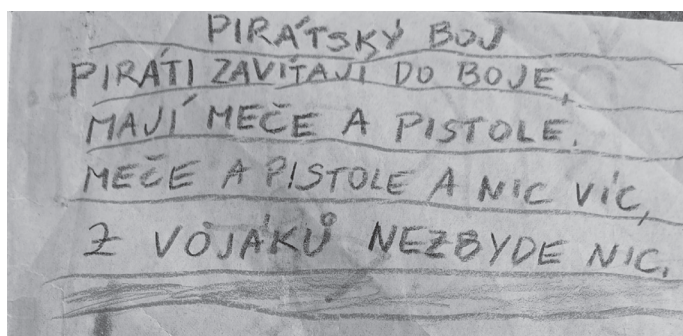 PIRÁTSKÝ BOJ
PIRÁTI ZAVÍTAJÍ DO BOJE,
MAJÍ MEČE A PISTOLE.
MEČE A PISTOLE A NIC VÍC,
Z VOJÁKŮ NEZBYDE NIC.